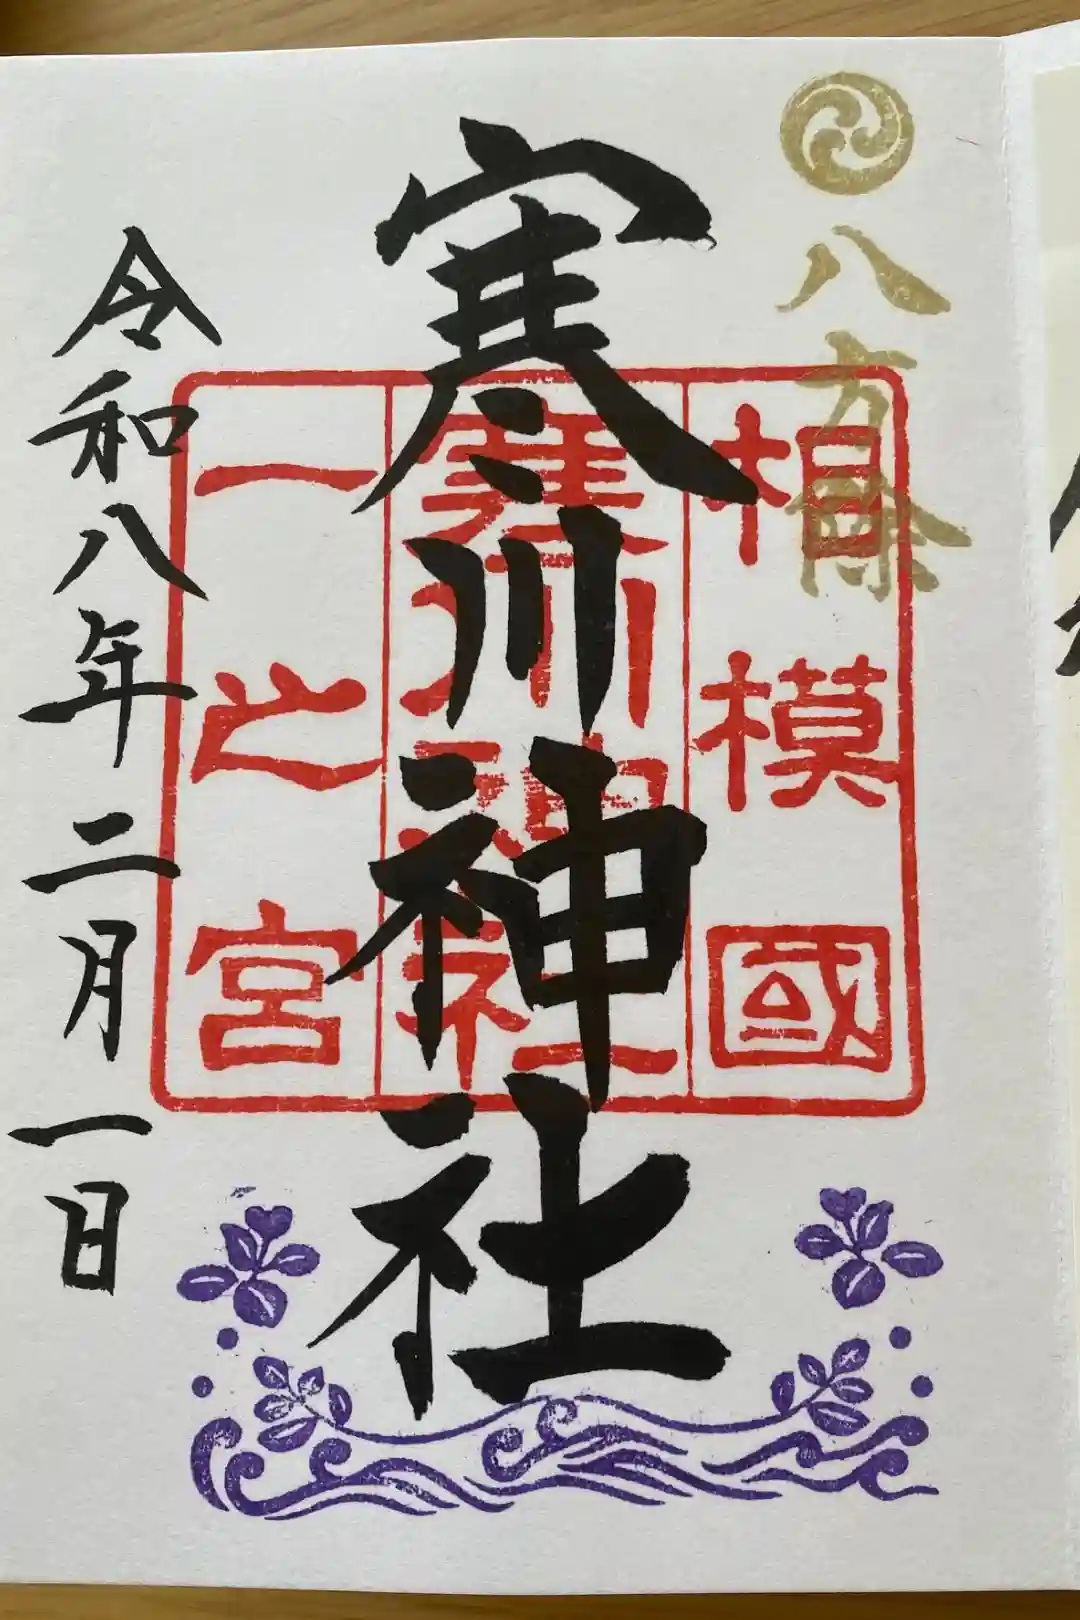 八方除
相模國
寒川神社
一之宮
寒川神社
令和八年二月一日